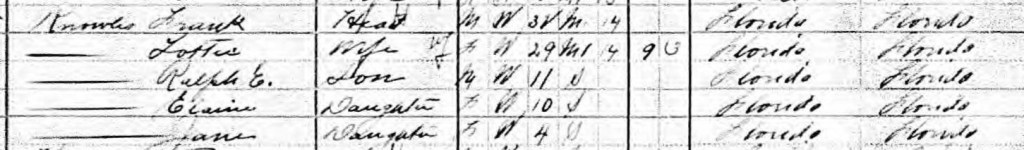 Knowles Frank Head M W 38 M 14 Florida Florida
Wife F W 29 M1 14 9 Florida Florida
Ralph E. Son M W 11 S Florida Florida
Elaine Daughter F W 10 S Florida Florida
Daughter F W 4 S Florida Florida